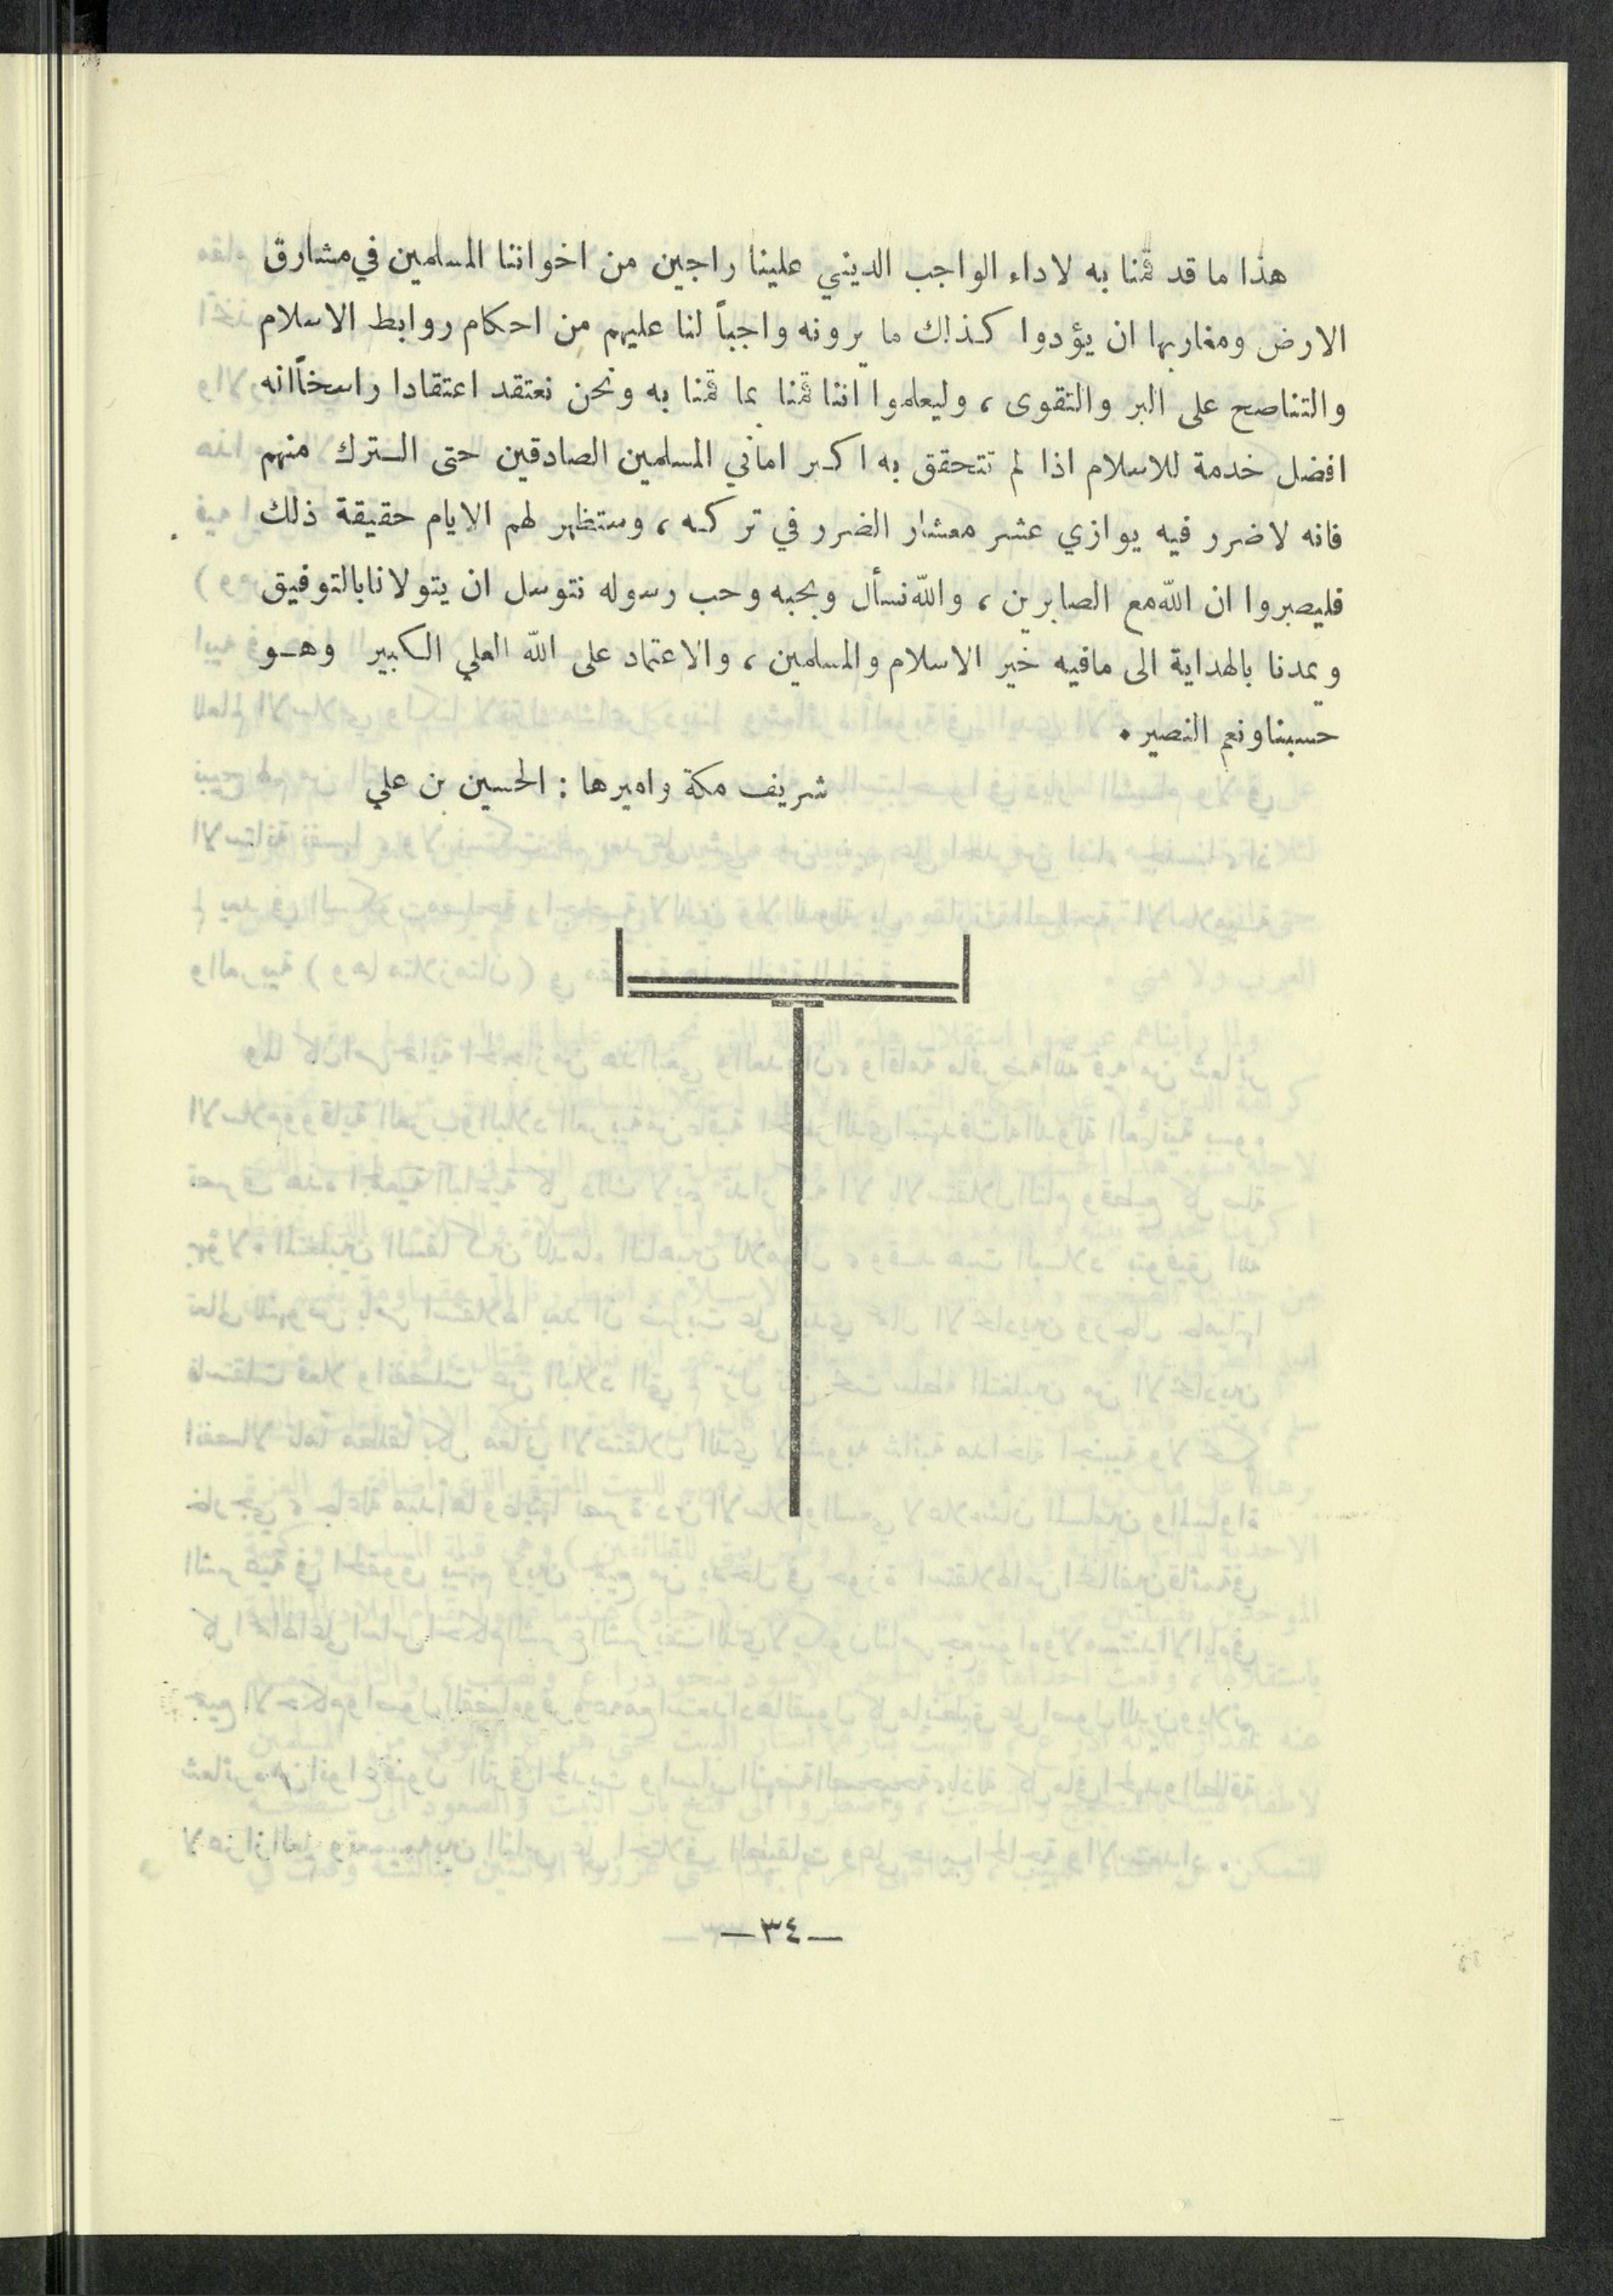 هذا ما قد قمنا به لاداء الواجب الديني علينا راجين من اخواننا المسلمين في مشارق
الارض ومغاربها ان يؤدوا كذلك ما يرونه واجباً لنا عليهم من احكام روابط الاسلام
والتناصح على البر والتقوى ، وليعلموا اننا قمنا بما قمنا به ونحن نعتقد اعتقادا راسخاً انه
افضل خدمة للاسلام اذا لم تتحقق به اكبر اماني المسلمين الصادقين حتى الترك منهم
فانه لاضرر فيه يوازي عشر معشار الضرر في تركه ، وستظهر لهم الايام حقيقة ذلك
فليصبروا ان الله مع الصابرين ، والله نسأل وبحبه وحب رسوله نتوسل ان يتولانا بالتوفيق
ويمدنا بالهداية الى مافيه خير الاسلام والمسلمين ، والاعتماد على الله العلي الكبير وهو
حسبنا ونعم النصير .
شريف مكة واميرها : الحسين بن علي
— ٣٤ —